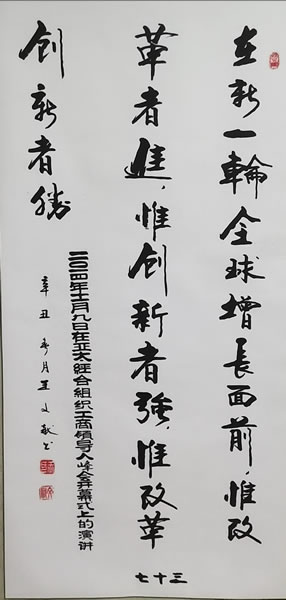 在新一輪全球增長面前，惟改
革者進，惟創新者強，惟改革
創新者勝
二〇一四年十一月九日在亚太經合組织工商領导人峰会开幕式上的演讲
辛丑 月王文 书
七十三